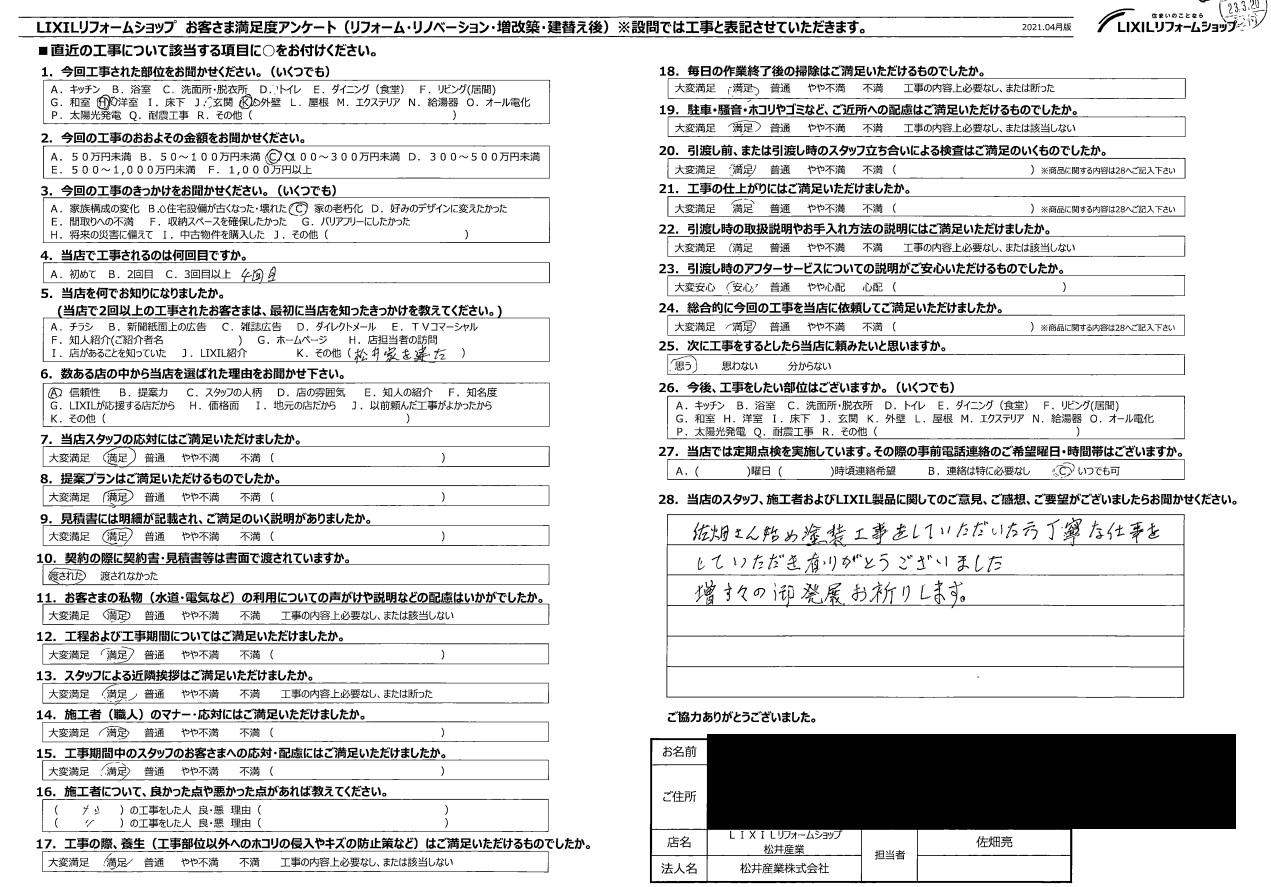 LIXILリフォームショップ お客さま満足度アンケート（リフォーム・リノベーション・増改築・建替え後）※設問では工事と表記させていただきます。
2021.04月版
住まいのことなら
LIXILリフォームショップ
23.3.20
■直近の工事について該当する項目に○をお付けください。
1．今回工事された部位をお聞かせください。（いくつでも）
A．キッチン B．浴室 C．洗面所・脱衣所 D．トイレ E．ダイニング（食堂） F．リビング(居間)
G．和室 H 洋室 I．床下 J．玄関 K 外壁 L．屋根 M．エクステリア N．給湯器 O．オール電化
P．太陽光発電 Q．耐震工事 R．その他（ ）
2．今回の工事のおおよその金額をお聞かせください。
A．50万円未満 B．50～100万円未満 C 100～300万円未満 D．300～500万円未満
E．500～1,000万円未満 F．1,000万円以上
3．今回の工事のきっかけをお聞かせください。（いくつでも）
A．家族構成の変化 B．住宅設備が古くなった・壊れた C 家の老朽化 D．好みのデザインに変えたかった
E．間取りへの不満 F．収納スペースを確保したかった G．バリアフリーにしたかった
H．将来の災害に備えて I．中古物件を購入した J．その他（ ）
4．当店で工事されるのは何回目ですか。
A．初めて B．2回目 C．3回目以上 4回目
5．当店を何でお知りになりましたか。
(当店で2回以上の工事されたお客さまは、最初に当店を知ったきっかけを教えてください。)
A．チラシ B．新聞紙面上の広告 C．雑誌広告 D．ダイレクトメール E．TVコマーシャル
F．知人紹介(ご紹介者名 ） G．ホームページ H．店担当者の訪問
I．店があることを知っていた J．LIXIL紹介 K．その他（松井家を建た ）
6．数ある店の中から当店を選ばれた理由をお聞かせ下さい。
A 信頼性 B．提案力 C．スタッフの人柄 D．店の雰囲気 E．知人の紹介 F．知名度
G．LIXILが応援する店だから H．価格面 I．地元の店だから J．以前頼んだ工事がよかったから
K．その他（ ）
7．当店スタッフの応対にはご満足いただけましたか。
大変満足 満足 普通 やや不満 不満（ ）
8．提案プランはご満足いただけるものでしたか。
大変満足 満足 普通 やや不満 不満（ ）
9．見積書には明細が記載され、ご満足のいく説明がありましたか。
大変満足 満足 普通 やや不満 不満（ ）
10．契約の際に契約書・見積書等は書面で渡されていますか。
渡された 渡されなかった
11．お客さまの私物（水道・電気など）の利用についての声がけや説明などの配慮はいかがでしたか。
大変満足 満足 普通 やや不満 不満 工事の内容上必要なし、または該当しない
12．工程および工事期間についてはご満足いただけましたか。
大変満足 満足 普通 やや不満 不満（ ）
13．スタッフによる近隣挨拶はご満足いただけましたか。
大変満足 満足 普通 やや不満 不満 工事の内容上必要なし、または断った
14．施工者（職人）のマナー・応対にはご満足いただけましたか。
大変満足 満足 普通 やや不満 不満（ ）
15．工事期間中のスタッフのお客さまへの応対・配慮にはご満足いただけましたか。
大変満足 満足 普通 やや不満 不満（ ）
16．施工者について、良かった点や悪かった点があれば教えてください。
（ ）の工事をした人 良・悪 理由（ ）
（ ）の工事をした人 良・悪 理由（ ）
17．工事の際、養生（工事部位以外へのホコリの侵入やキズの防止策など）はご満足いただけるものでしたか。
大変満足 満足 普通 やや不満 不満 工事の内容上必要なし、または該当しない
18．毎日の作業終了後の掃除はご満足いただけるものでしたか。
大変満足 満足 普通 やや不満 不満 工事の内容上必要なし、または断った
19．駐車・騒音・ホコリやゴミなど、ご近所への配慮はご満足いただけるものでしたか。
大変満足 満足 普通 やや不満 不満 工事の内容上必要なし、または該当しない
20．引渡し前、または引渡し時のスタッフ立ち合いによる検査はご満足のいくものでしたか。
大変満足 満足 普通 やや不満 不満（ ）※商品に関する内容は28へご記入下さい
21．工事の仕上がりにはご満足いただけましたか。
大変満足 満足 普通 やや不満 不満（ ）※商品に関する内容は28へご記入下さい
22．引渡し時の取扱説明やお手入れ方法の説明にはご満足いただけましたか。
大変満足 満足 普通 やや不満 不満 工事の内容上必要なし、または該当しない
23．引渡し時のアフターサービスについての説明がご安心いただけるものでしたか。
大変安心 安心 普通 やや心配 心配（ ）
24．総合的に今回の工事を当店に依頼してご満足いただけましたか。
大変満足 満足 普通 やや不満 不満（ ）※商品に関する内容は28へご記入下さい
25．次に工事をするとしたら当店に頼みたいと思いますか。
思う 思わない 分からない
26．今後、工事をしたい部位はございますか。（いくつでも）
A．キッチン B．浴室 C．洗面所・脱衣所 D．トイレ E．ダイニング（食堂） F．リビング(居間)
G．和室 H．洋室 I．床下 J．玄関 K．外壁 L．屋根 M．エクステリア N．給湯器 O．オール電化
P．太陽光発電 Q．耐震工事 R．その他（ ）
27．当店では定期点検を実施しています。その際の事前電話連絡のご希望曜日・時間帯はございますか。
A．（ ）曜日（ ）時頃連絡希望 B．連絡は特に必要なし C いつでも可
28．当店のスタッフ、施工者およびLIXIL製品に関してのご意見、ご感想、ご要望がございましたらお聞かせください。
佐畑さん始め塗装工事をしていただいた方丁寧な仕事を
していただき有りがとうございました
増すゝの御発展お祈りします。
ご協力ありがとうございました。
お名前
ご住所
店名 LIXILリフォームショップ 松井産業 担当者 佐畑亮
法人名 松井産業株式会社